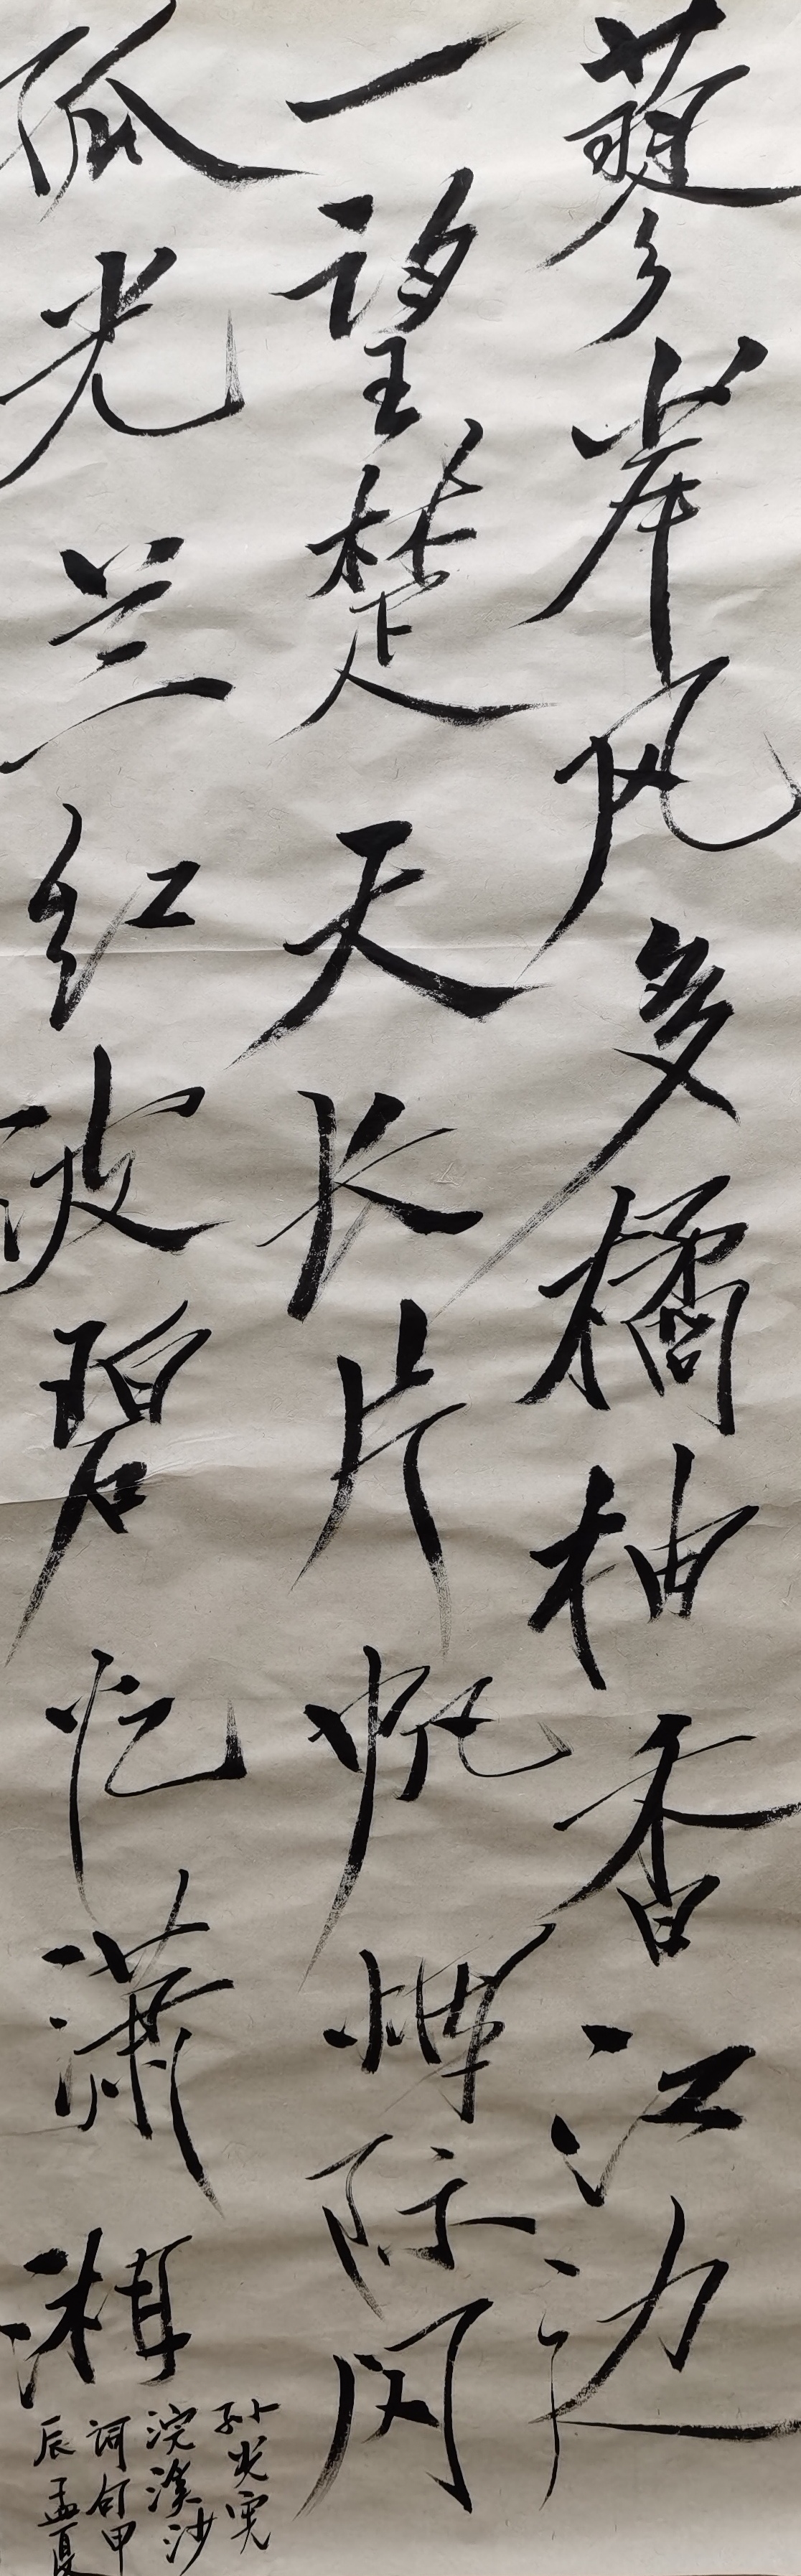 蓼岸风多橘柚香江边
一望楚天长片帆煙际闪
孤光兰红波碧忆潇湘
孙光宪
浣溪沙
词句甲
辰孟夏